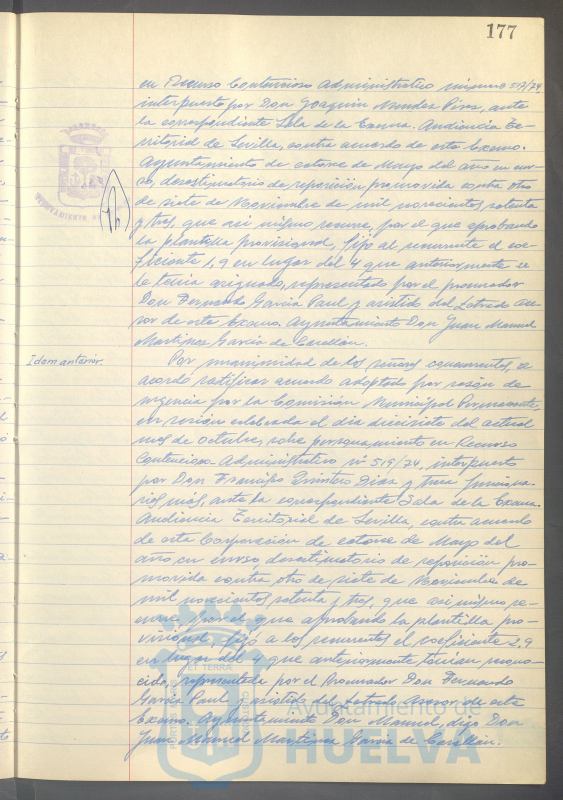 177
en Recurso Contencioso Administrativo número 517/74,
interpuesto por Don Joaquín Mendez Pires, ante
la correspondiente Sala de la Excma. Audiencia Te-
rritorial de Sevilla, contra acuerdo de este Excmo.
Ayuntamiento de catorce de Mayo del año en cur-
so, desestimatorio de reposición promovida contra otro
de siete de Noviembre de mil novecientos setenta
y tres, que asi mismo recurre, por el que aprobando
la plantilla provisional, fijó al recurrente el coe-
ficiente 1,9 en lugar del 4 que anteriormente se
le tenia asignado, representado por el procurador
Don Fernando García Paul y asistido del Letrado Ase-
sor de este Excmo. Ayuntamiento Don Juan Manuel
Martinez García de Casellan.
Idem anterior.
Por unanimidad de los señores concurrentes, se
acordo ratificar acuerdo adoptado por razón de
urgencia por la Comisión Municipal Permanente,
en sesión celebrada el dia diecisiete del actual
mes de octubre, sobre personamiento en Recurso
Contencioso-Administrativo nº 519/74, interpuesto
por Don Francisco Quintero Diaz y tres funciona-
rios más, ante la correspondiente Sala de la Excma.
Audiencia Territorial de Sevilla, contra acuerdo
de esta Corporación de catorce de Mayo del
año en curso, desestimatorio de reposición pro-
movida contra otro de siete de Noviembre de
mil novecientos setenta y tres, que asi mismo re-
curre, por el que aprobando la plantilla pro-
visional, fijó a los recurrentes el coeficiente 2,9
en lugar del 4 que anteriormente tenian recono-
cido, representada por el Procurador Don Fernando
García Paul y asistido del Letrado Asesor de este
Excmo. Ayuntamiento Don Manuel, digo Don
Juan Manuel Martinez García de Casellan.
ET TERRA
Ayuntamiento de
HUELVA